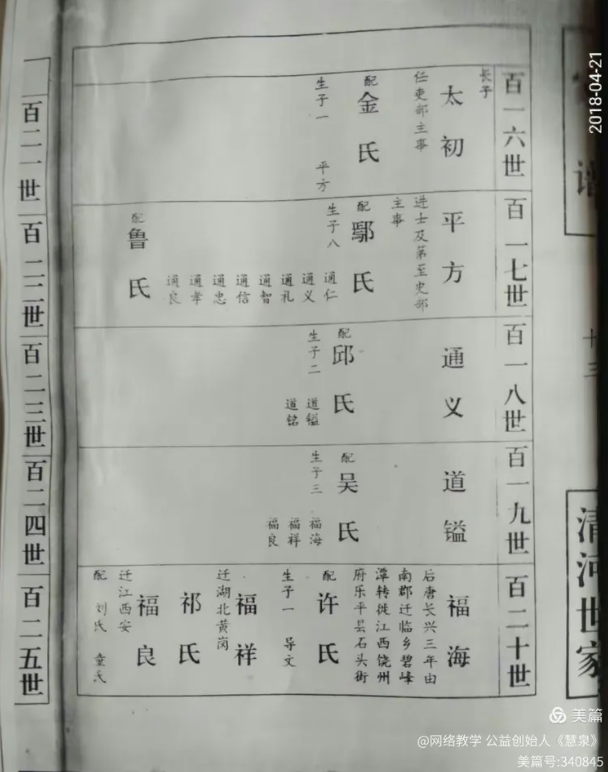 百一六世
长子
太初
任吏部主事
配
金氏
生子一
平方
百一七世
平方
进士及第至吏部
主事
配
鄢氏
生子八
通仁
通义
通礼
通智
通信
通忠
通孝
通良
配
鲁氏
百一八世
通义
配
邱氏
生子二
道镒
道铭
百一九世
道镒
配
吴氏
生子三
福海
福祥
福良
百二十世
福海
后唐长兴三年由
南郡迁临乡碧峰
潭转徙江西饶州
府乐平县石头街
配
许氏
生子一
导文
福祥
迁湖北黄岗
祁氏
福良
迁江西安
配
刘氏
童氏
百二一世
百二二世
百二三世
百二四世
百二五世
谱
十三
清河世家
2018-04-21
美篇
@网络教学 公益创始人《慧泉》
美篇号:340845